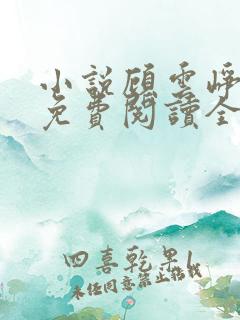 小說顧雲崢
免費閱讀全
四喜乾果1
未經同意禁止轉載